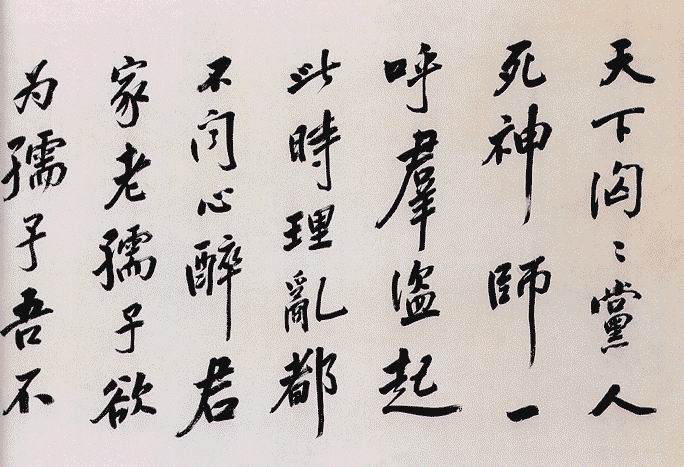 天下洶〻黨人
死神師一
呼羣盜起
此時理亂都
不问心醉君
家老孺子欲
为孺子吾不